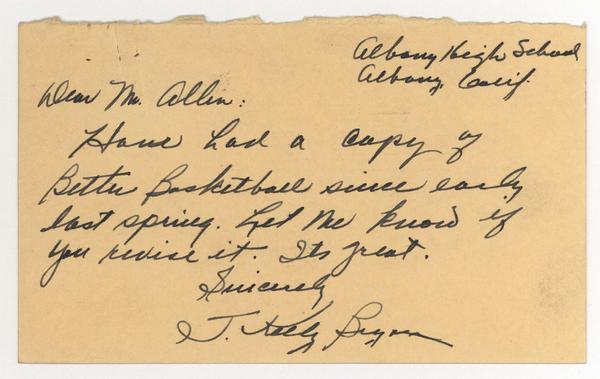 Albany High School
Albany, Calif.
Dear Mr. Allen:
Have had a copy of
Better Basketball since early
last spring. Let me know if
you revise it. Its great.
Sincerely
J. Kelly